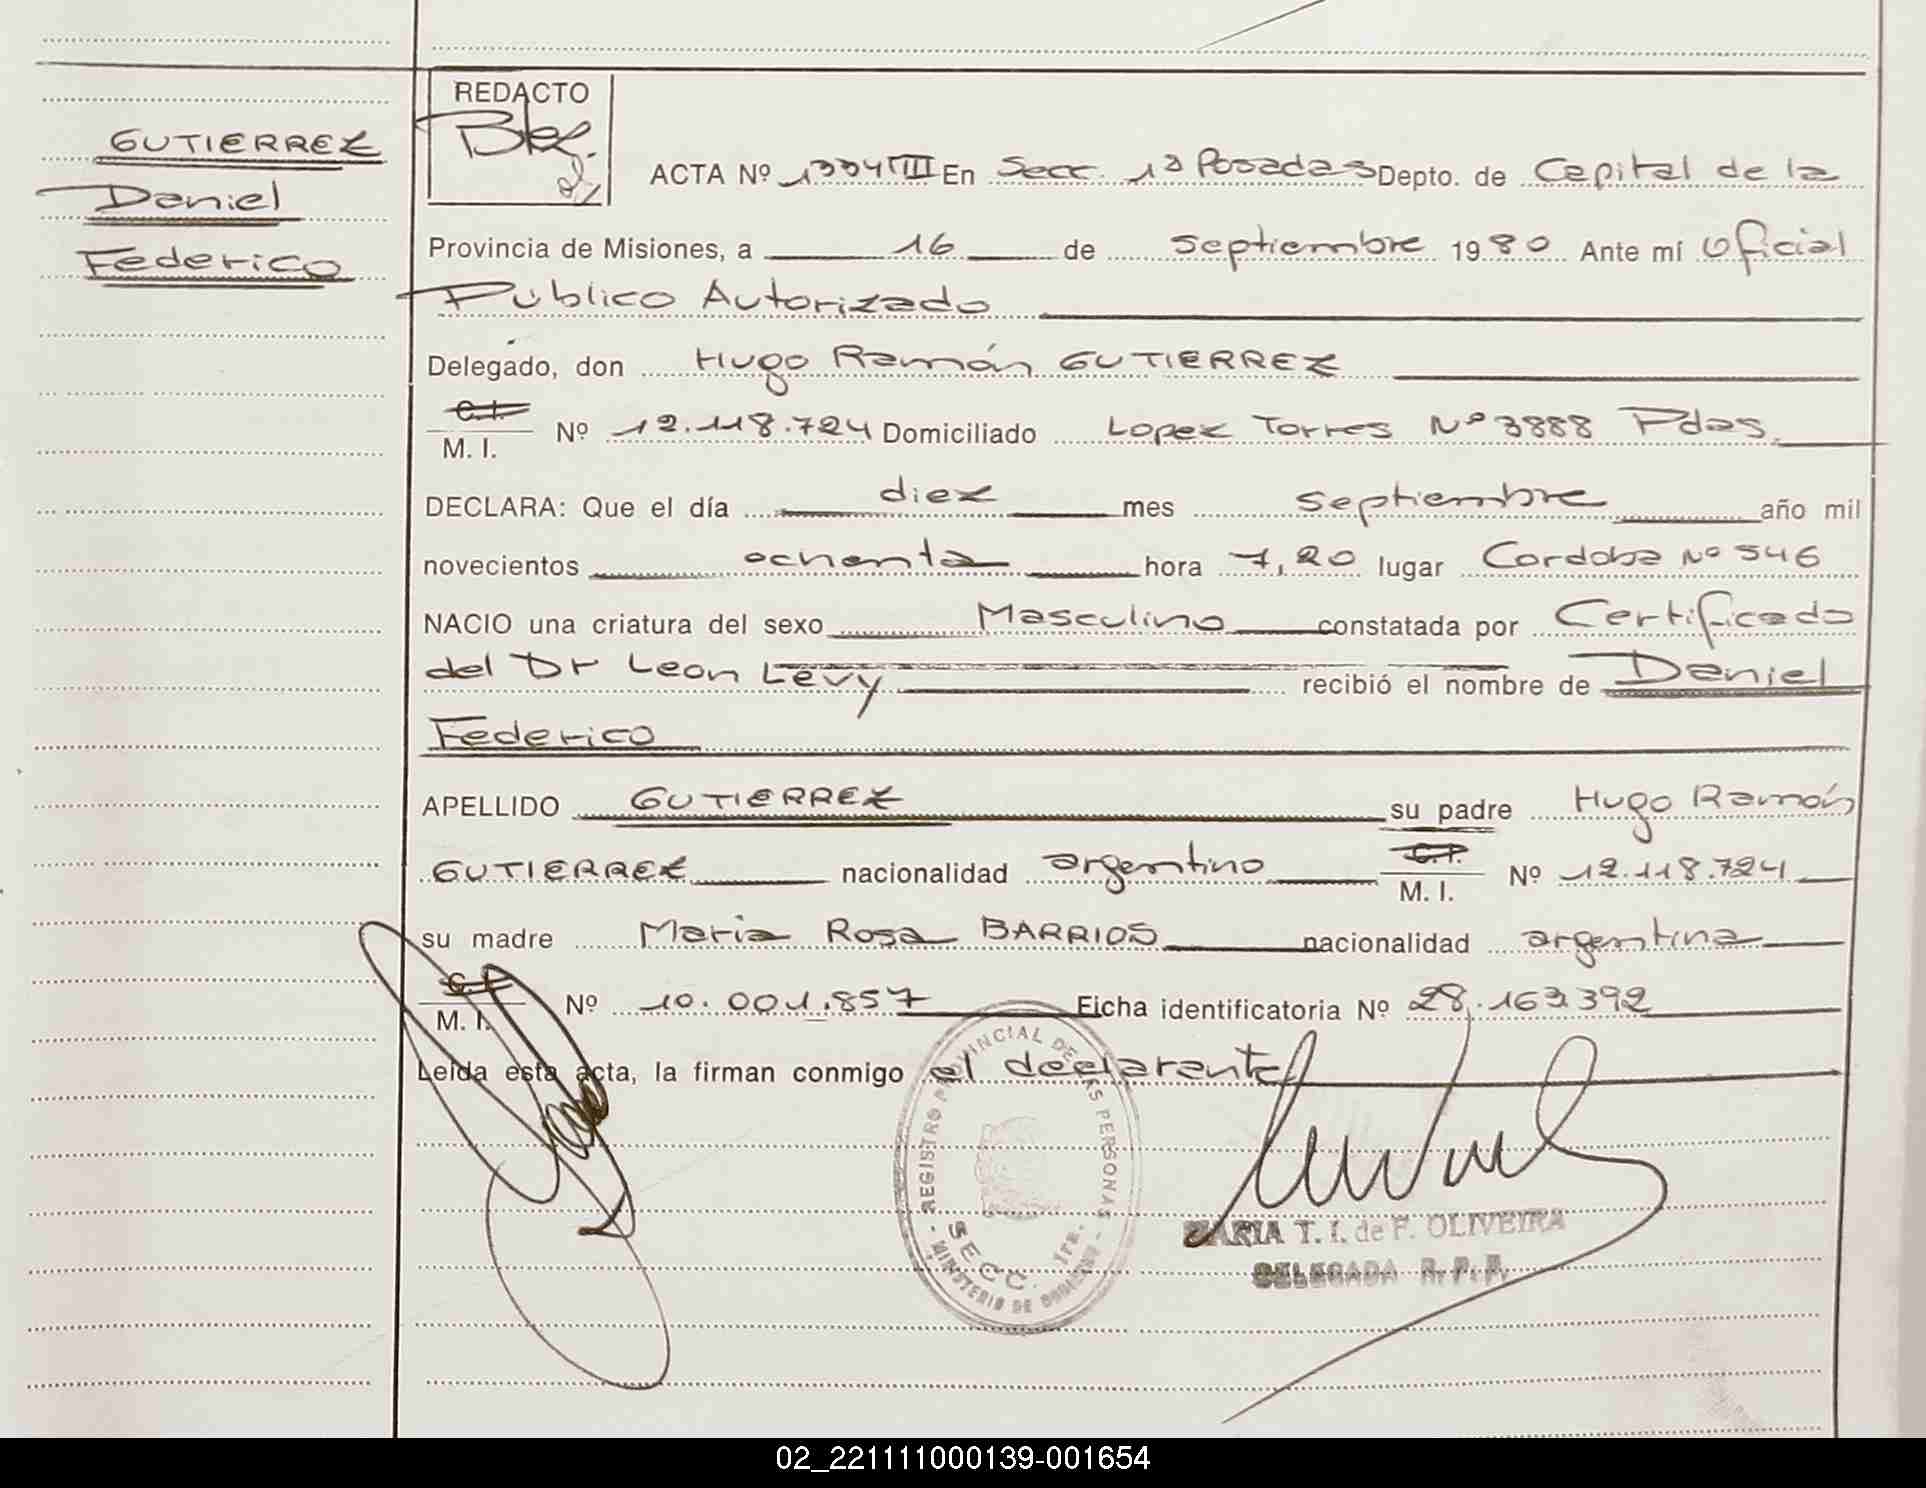 GUTIERREZ
Daniel
Federico
REDACTO
ACTA Nº 1334 III En Secc. 1ª Posadas Depto. de Capital de la
Provincia de Misiones, a 16 de septiembre 1980 Ante mí Oficial
Público Autorizado
Delegado, don Hugo Ramón GUTIERREZ
C. I.
M. I. Nº 12.118.724 Domiciliado Lopez Torres Nº 3888 Pdas.
DECLARA: Que el día diez mes septiembre año mil
novecientos ochenta hora 7,20 lugar Cordoba Nº 546
NACIO una criatura del sexo Masculino constatada por Certificado
del Dr Leon Levy recibió el nombre de Daniel
Federico
APELLIDO GUTIERREZ su padre Hugo Ramón
GUTIERREZ nacionalidad argentino C. I. M. I. Nº 12.118.724
su madre Maria Rosa BARRIOS nacionalidad argentina
C. I.
M. I. Nº 10.001.857 Ficha identificatoria Nº 28.163.392
Leída esta acta, la firman conmigo el declarante
REGISTRO PROVINCIAL DE LAS PERSONAS
SECC. 1ra.
MINISTERIO DE GOBIERNO
MARIA T. I. de F. OLIVEIRA
DELEGADA R. P. P.
02_221111000139-001654